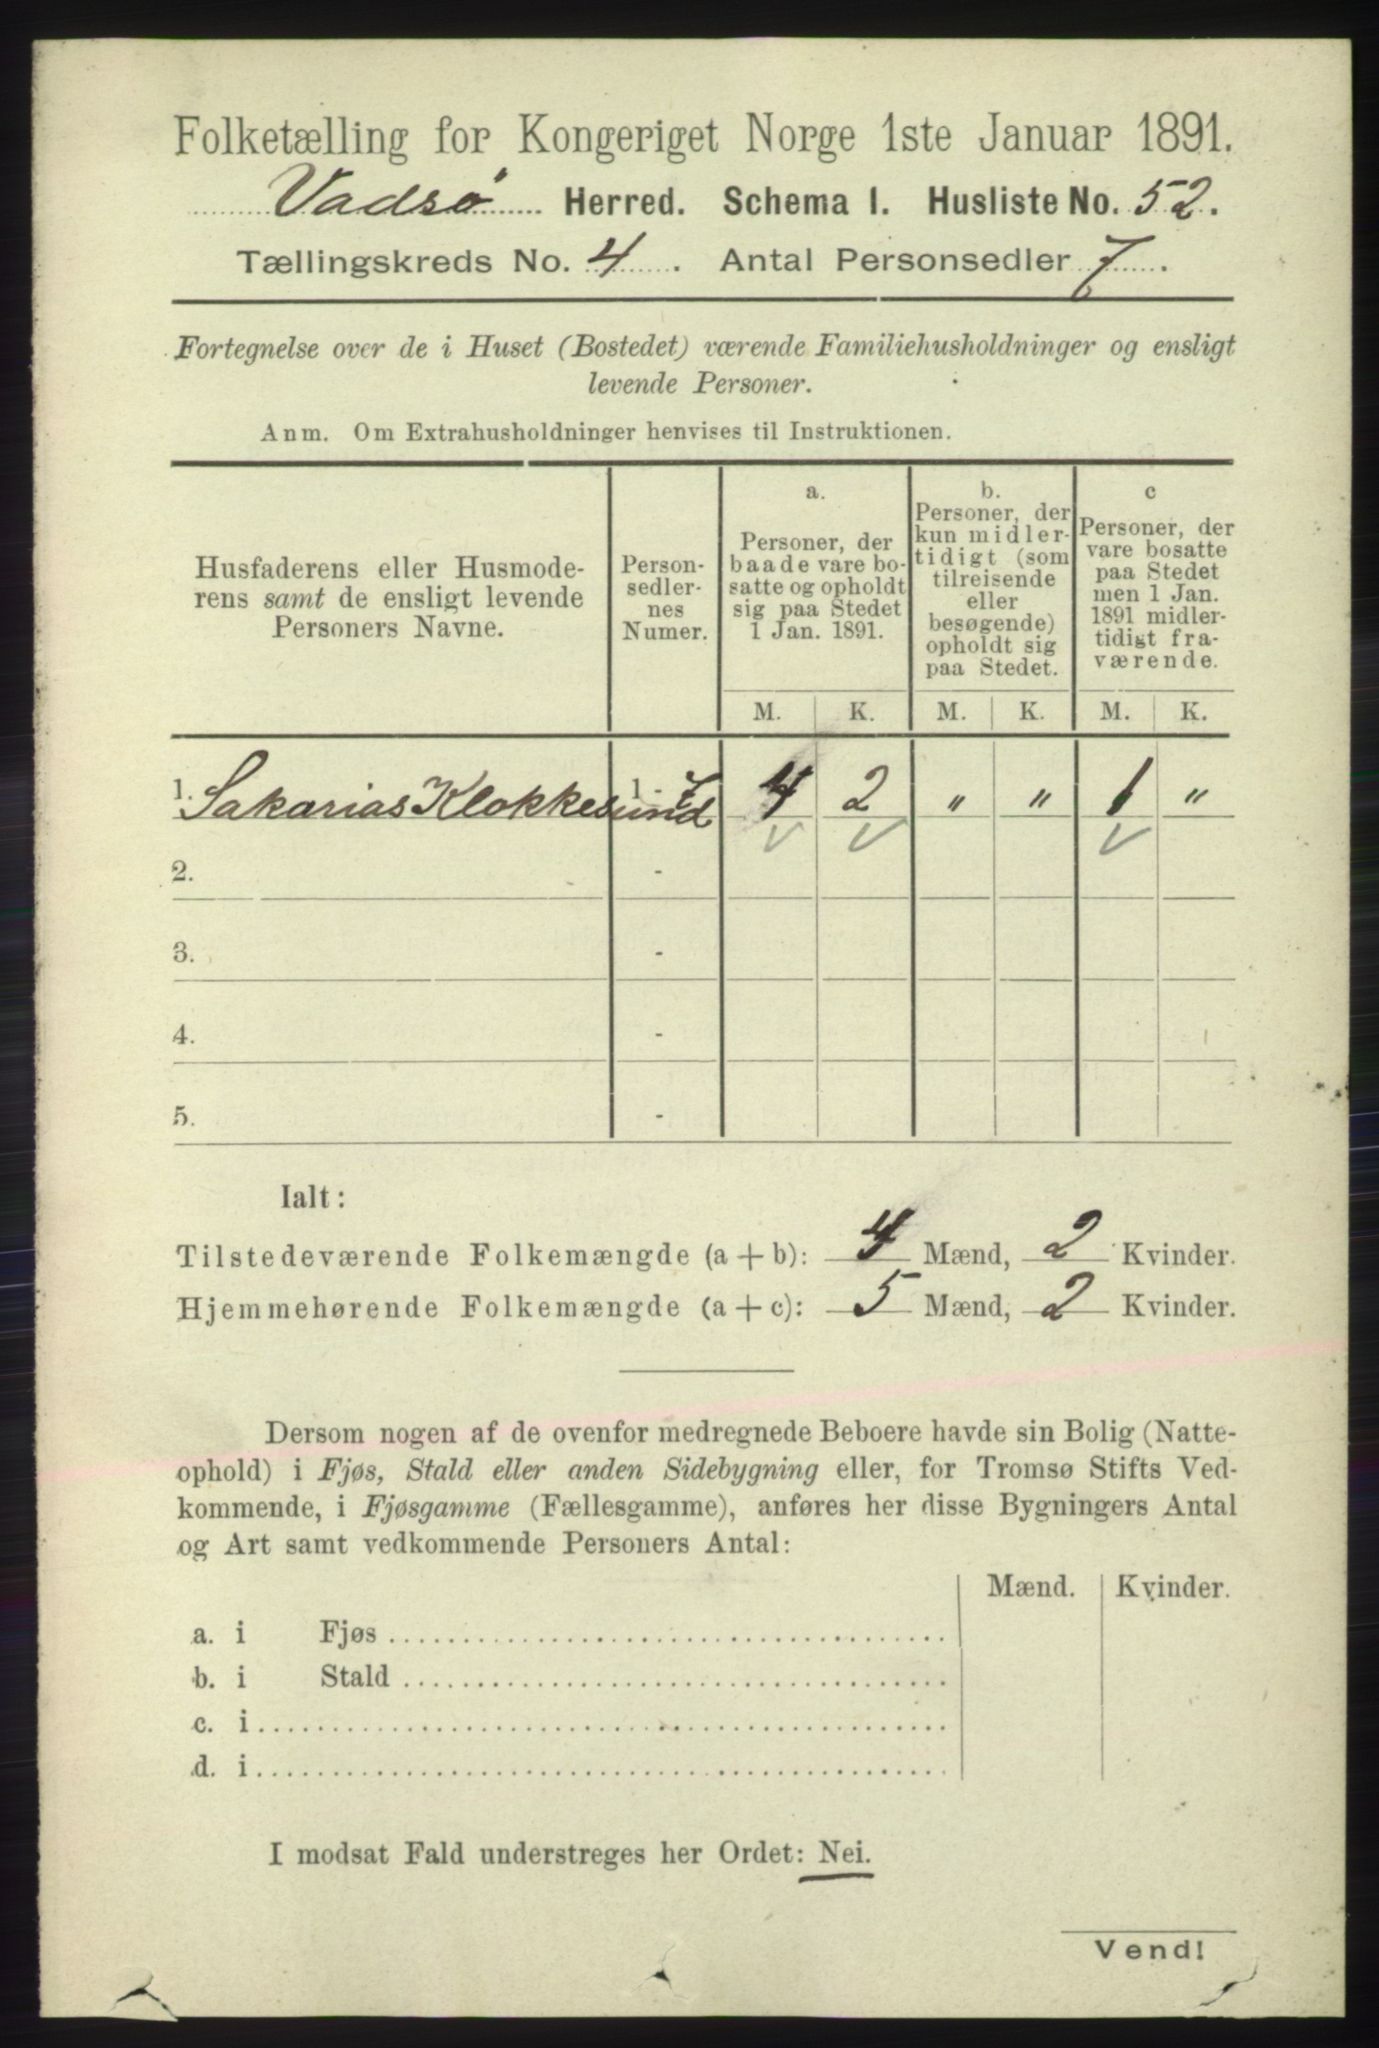 Folketælling for Kongeriget Norge 1ste Januar 1891.
Vadsø Herred. Schema 1. Husliste No. 52.
Tællingskreds No. 4. Antal Personsedler 7.
Fortegnelse over de i Huset (Bostedet) værende Familiehusholdninger og ensligt
levende Personer.
Anm. Om Extrahusholdninger henvises til Instruktionen.
Husfaderens eller Husmode-
rens samt de ensligt levende
Personers Navne.
Person-
sedler-
nes
Numer.
a.
Personer, der
baade vare bo-
satte og opholdt
sig paa Stedet
1 Jan. 1891.
b.
Personer, der
kun midler-
tidigt (som
tilreisende
eller
besøgende)
opholdt sig
paa Stedet.
c
Personer, der
vare bosatte
paa Stedet
men 1 Jan.
1891 midler-
tidigt fra-
værende.
M. K. M. K. M. K.
1. Sakarias Klokkesund 1 - 7 4 2 " " 1 "
2. -
3. -
4. -
5. -
Ialt:
Tilstedeværende Folkemængde (a + b): 4 Mænd, 2 Kvinder.
Hjemmehørende Folkemængde (a + c): 5 Mænd, 2 Kvinder.
Dersom nogen af de ovenfor medregnede Beboere havde sin Bolig (Natte-
ophold) i Fjøs, Stald eller anden Sidebygning eller, for Tromsø Stifts Ved-
kommende, i Fjøsgamme (Fællesgamme), anføres her disse Bygningers Antal
og Art samt vedkommende Personers Antal:
Mænd. Kvinder.
a. i Fjøs
b. i Stald
c. i
d. i
I modsat Fald understreges her Ordet: Nei.
Vend!